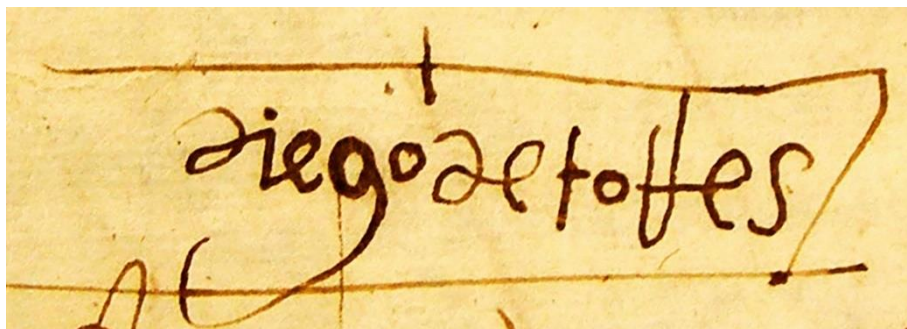 diego de torres